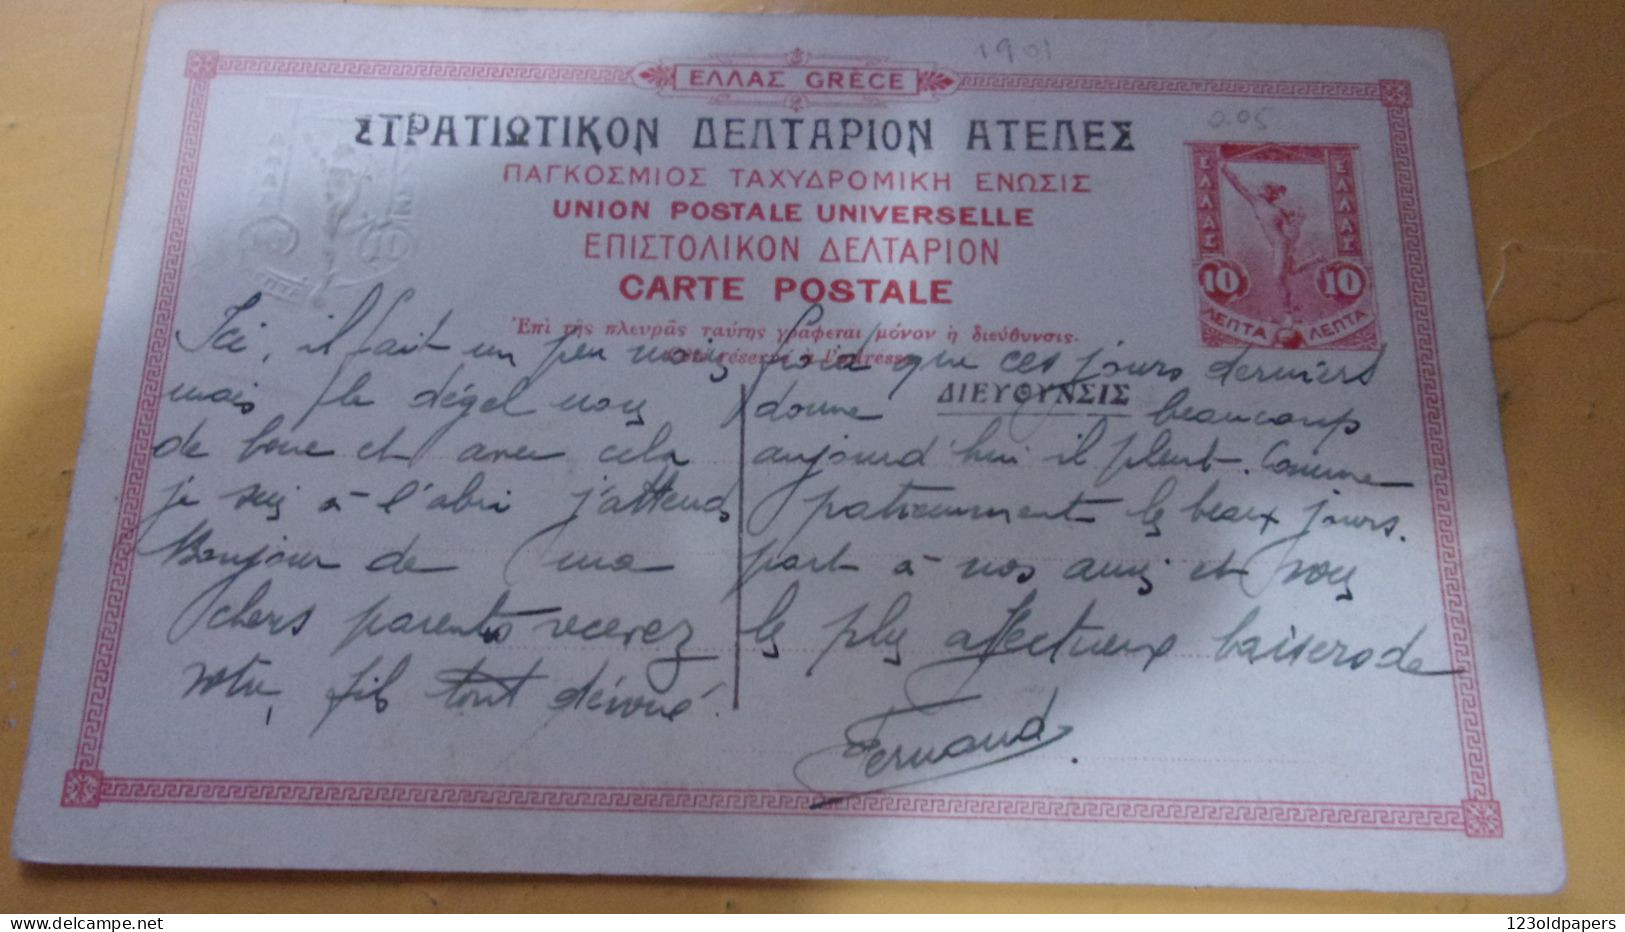 1901
ΕΛΛΑΣ GRÈCE
0.05
ΣΤΡΑΤΙΩΤΙΚΟΝ ΔΕΛΤΑΡΙΟΝ ΑΤΕΛΕΣ
ΠΑΓΚΟΣΜΙΟΣ ΤΑΧΥΔΡΟΜΙΚΗ ΕΝΩΣΙΣ
UNION POSTALE UNIVERSELLE
ΕΠΙΣΤΟΛΙΚΟΝ ΔΕΛΤΑΡΙΟΝ
CARTE POSTALE
ΕΛΛΑΣ ΕΛΛΑΣ
10 10
ΛΕΠΤΑ ΛΕΠΤΑ
Ἐπὶ τῆς πλευρᾶς ταύτης γράφεται μόνον ἡ διεύθυνσις.
réservé à l'adresse
ΔΙΕΥΘΥΝΣΙΣ
Ici, il fait un peu moins froid que ces jours derniers
mais le dégel nous donne beaucoup
de boue et avec cela aujourd'hui il pleut. Comme
je suis à l'abri j'attends patiemment les beaux jours.
Bonjour de ma part à nos amis et vous
chers parents recevez les plus affectueux baisers de
votre fils tout dévoué.
Fernand.
123oldpapers